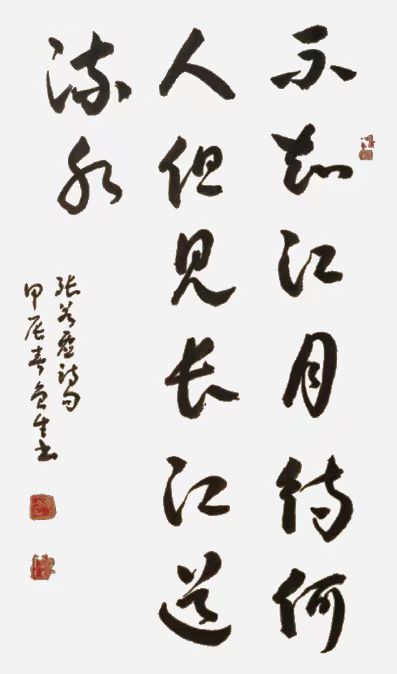 不知江月待何
人但见长江送
流水
张若虚诗句
甲辰春鲁生书